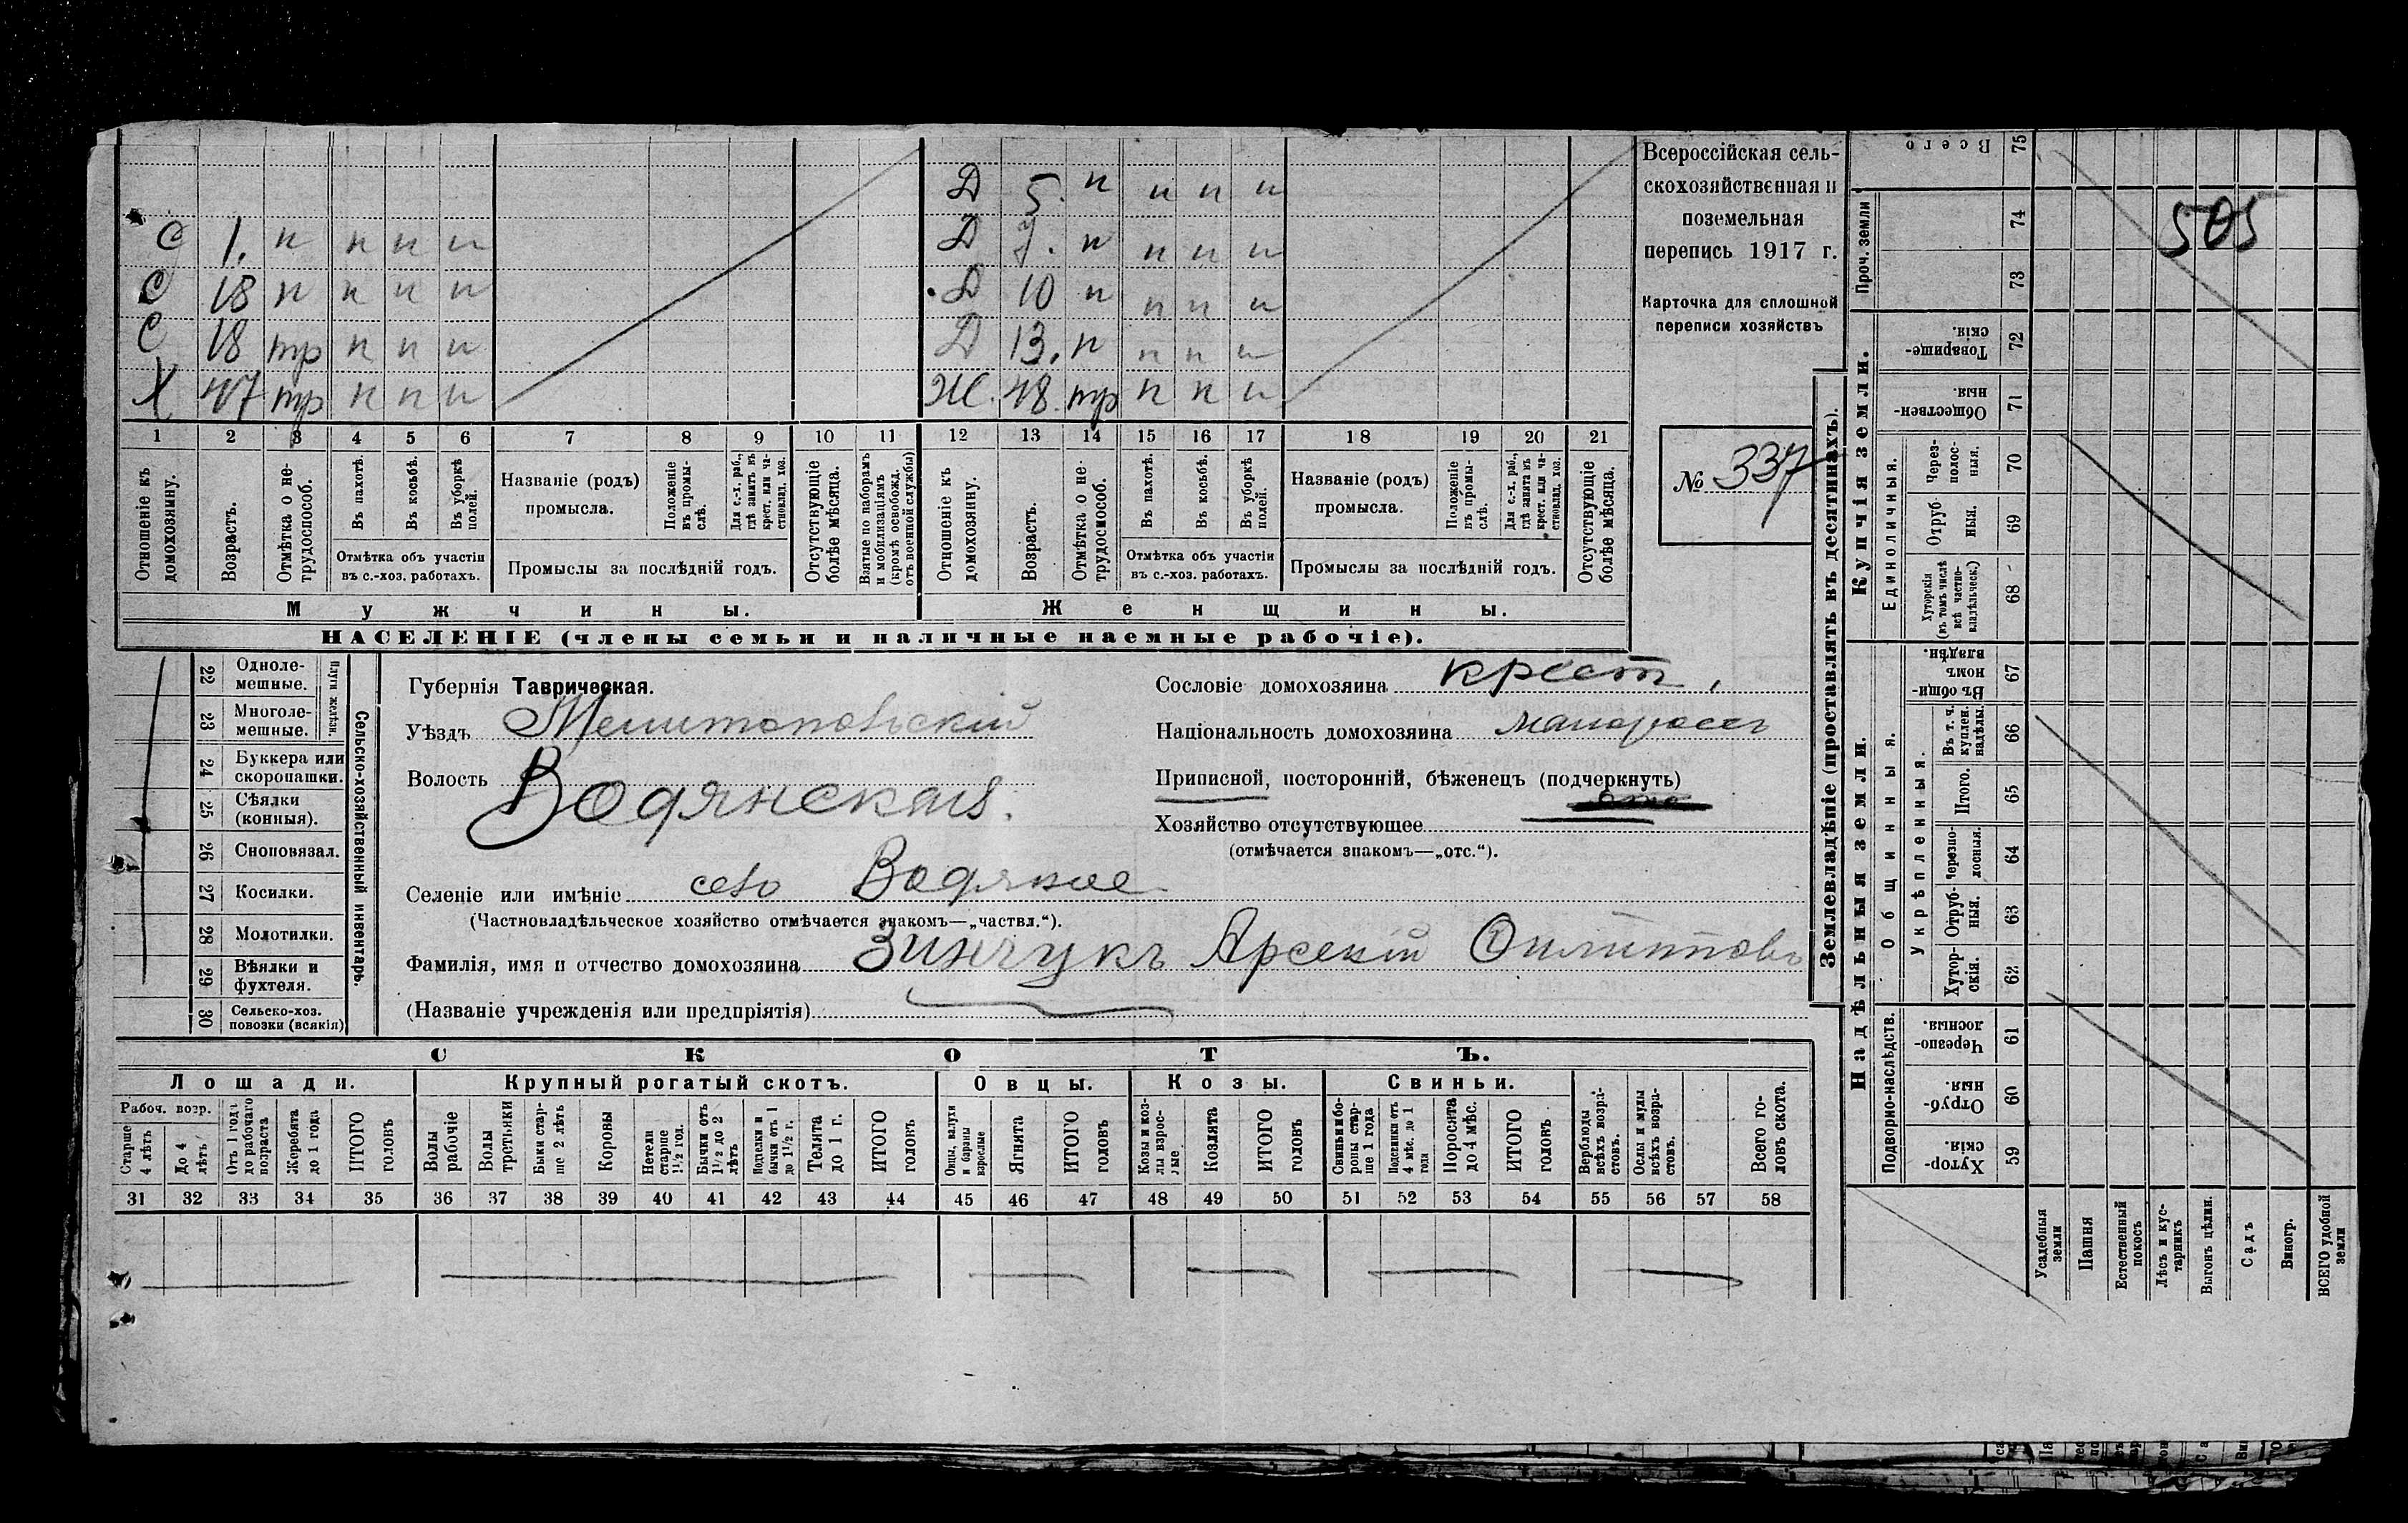 Д 5. н н н н
С 1. н н н н Д 7. н н н н
С 18 н н н н Д 10 н н н н
С 18 тр н н н Д 13. н н н н
Х 47 тр н н н Ж. 48 тр н н н
1 2 3 4 5 6 7 8 9 10 11 12 13 14 15 16 17 18 19 20 21
Отношеніе къ домохозяину.
Возрастъ.
Отмѣтка о не-трудоспособ.
Въ пахотѣ.
Въ косьбѣ.
Въ уборкѣ полей.
Отмѣтка объ участіи
въ с.-хоз. работахъ.
Названіе (родъ)
промысла.
Положеніе въ промы-слѣ.
Для с.-х. раб., гдѣ занятъ въ крест. или ча-стновлад. хоз.
Промыслы за послѣдній годъ.
Отсутствующіе болѣе мѣсяца.
Взятые по наборамъ и мобилизаціямъ (кромѣ освобожд. отъ военной службы)
Отношеніе къ домохозяину.
Возрастъ.
Отмѣтка о не-трудоспособ.
Въ пахотѣ.
Въ косьбѣ.
Въ уборкѣ полей.
Отмѣтка объ участіи
въ с.-хоз. работахъ.
Названіе (родъ)
промысла.
Положеніе въ промы-слѣ.
Для с.-х. раб., гдѣ занята въ крест. или ча-стновлад. хоз.
Промыслы за послѣдній годъ.
Отсутствующіе болѣе мѣсяца.
Мужчины.
Женщины.
НАСЕЛЕНІЕ (члены семьи и наличные наемные рабочіе).
Всероссійская сель-
скохозяйственная и
поземельная
перепись 1917 г.
Карточка для сплошной
переписи хозяйствъ
№ 337
22 Одноле-мешные.
23 Многоле-мешные.
Плуги желѣзн.
24 Буккера или скоропашки.
25 Сѣялки (конныя).
26 Сноповязал.
27 Косилки.
28 Молотилки.
29 Вѣялки и фухтеля.
30 Сельско-хоз. повозки (всякія)
Сельско-хозяйственный инвентарь.
Губернія Таврическая.
Уѣздъ Мелитопольскій
Волость Водянская.
Селеніе или имѣніе село Водяное
(Частновладѣльческое хозяйство отмѣчается знакомъ—„частвл.“).
Фамилія, имя и отчество домохозяина Зинчукъ Арсеній Филипповъ
(Названіе учрежденія или предпріятія)
Сословіе домохозяина крест.
Національность домохозяина малороссъ
Приписной, посторонній, бѣженецъ (подчеркнуть)
Хозяйство отсутствующее
(отмѣчается знакомъ—„отс.“).
СКОТЪ.
Лошади. Крупный рогатый скотъ. Овцы. Козы. Свиньи.
Рабоч. возр.
Старше 4 лѣтъ
До 4 лѣтъ
Отъ 1 года до рабочаго возраста
Жеребята до 1 года
ИТОГО головъ
Волы рабочіе
Волы третьяки
Быки стар-ше 2 лѣтъ
Коровы
Нетели старше 1½ год.
Бычки отъ 1½ до 2 лѣтъ
Подтелки и бычки отъ 1 до 1½ г.
Телята до 1 г.
ИТОГО головъ
Овцы, валухи и бараны взрослые
Ягнята
ИТОГО головъ
Козы и коз-лы взрос-лые
Козлята
ИТОГО головъ
Свиньи и бо-ровы стар-ше 1 года
Подсвинки отъ 4 мѣс. до 1 года
Поросята до 4 мѣс.
ИТОГО головъ
Верблюды всѣхъ возра-стовъ.
Ослы и мулы всѣхъ возра-стовъ.
Всего го-ловъ скота.
31 32 33 34 35 36 37 38 39 40 41 42 43 44 45 46 47 48 49 50 51 52 53 54 55 56 57 58
Землевладѣніе (проставлять въ десятинахъ).
505
Всего 75
Проч. земли
74
73
Купчія земли.
Товарище-скія. 72
Обществен-ныя. 71
Единоличныя.
Через-полос-ныя. 70
Отруб-ныя. 69
Хуторскія (въ томъ числѣ всѣ частно-владѣльческ.) 68
Надѣльныя земли.
Общинныя.
Въ общин-номъ владѣн. 67
Укрѣпленныя.
Въ т. ч. куплен. надѣлы. 66
Итого. 65
Черезпо-лосныя. 64
Отруб-ныя. 63
Хутор-скія. 62
Подворно-наслѣдств.
Черезпо-лосныя. 61
Отруб-ныя. 60
Хутор-скія. 59
Усадебныя земли
Пашня
Естественный покосъ
Лѣсъ и кус-тарникъ
Выгонъ цѣлин.
Садъ
Виногр.
ВСЕГО удобной земли